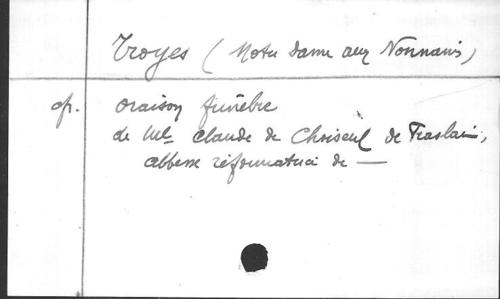 Troyes (Notre Dame aux Nonnains)
cfr. oraison funèbre
de Me Claude de Choiseul de Praslain,
abbesse réformatrice de —